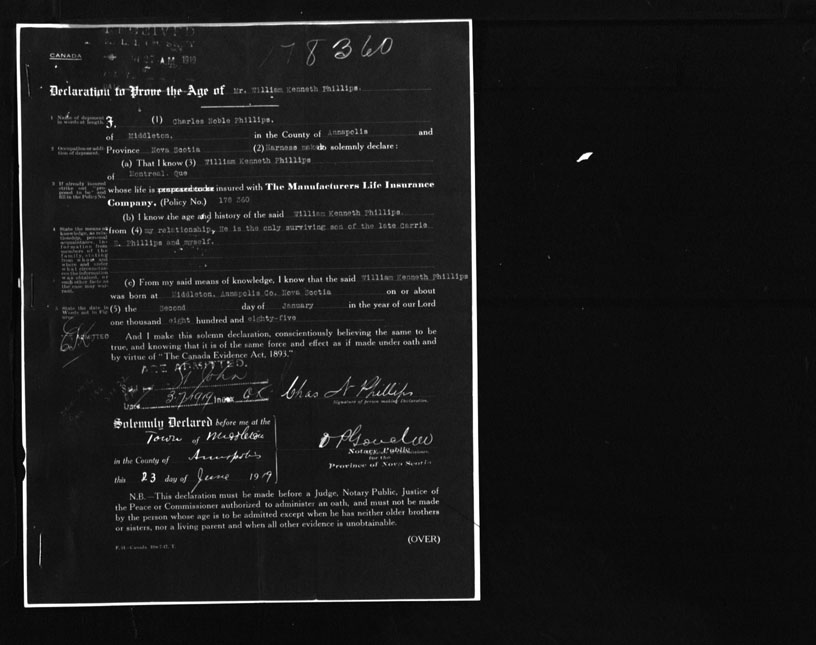 RECEIVED
178360
CANADA
A.M. 1919
Declaration to Prove the Age of Mr. William Kenneth Phillips.
1 Name of deponent in words at length.
I, (1) Charles Noble Phillips.
of Middleton. in the County of Annapolis and
2 Occupation or addition of deponent.
Province Nova Scotia (2) Harness maker do solemnly declare:
(a) That I know (3) William Kenneth Phillips
of Montreal. Que
3 If already insured strike out "proposed to be" and fill in the Policy No.
whose life is proposed to be insured with The Manufacturers Life Insurance
Company. (Policy No.) 178 360
(b) I know the age and history of the said William Kenneth Phillips.
4 State the means of knowledge, as relationship, personal acquaintance, information from members of the family, stating from whom and when and under what circumstances the information was obtained, or such other facts as the case may warrant.
from (4) my relationship, He is the only surviving son of the late Carrie
E. Phillips and myself.
(c) From my said means of knowledge, I know that the said William Kenneth Phillips
was born at Middleton. Annapolis Co. Nova Scotia on or about
5 State the date in Words not in Figures.
(5) the Second day of January in the year of our Lord
one thousand eight hundred and eighty-five
ADMITTED
And I make this solemn declaration, conscientiously believing the same to be
true, and knowing that it is of the same force and effect as if made under oath and
by virtue of "The Canada Evidence Act, 1893."
AGE ADMITTED.
St John
3/7/1919 Index O.K.
Chas N. Phillips
Signature of person making Declaration.
Solemnly Declared before me at the
Town of Middleton
in the County of Annapolis
this 23 day of June 1919
Notary Public
for the
Province of Nova Scotia
N.B.—This declaration must be made before a Judge, Notary Public, Justice of
the Peace or Commissioner authorized to administer an oath, and must not be made
by the person whose age is to be admitted except when he has neither older brothers
or sisters, nor a living parent and when all other evidence is unobtainable.
(OVER)